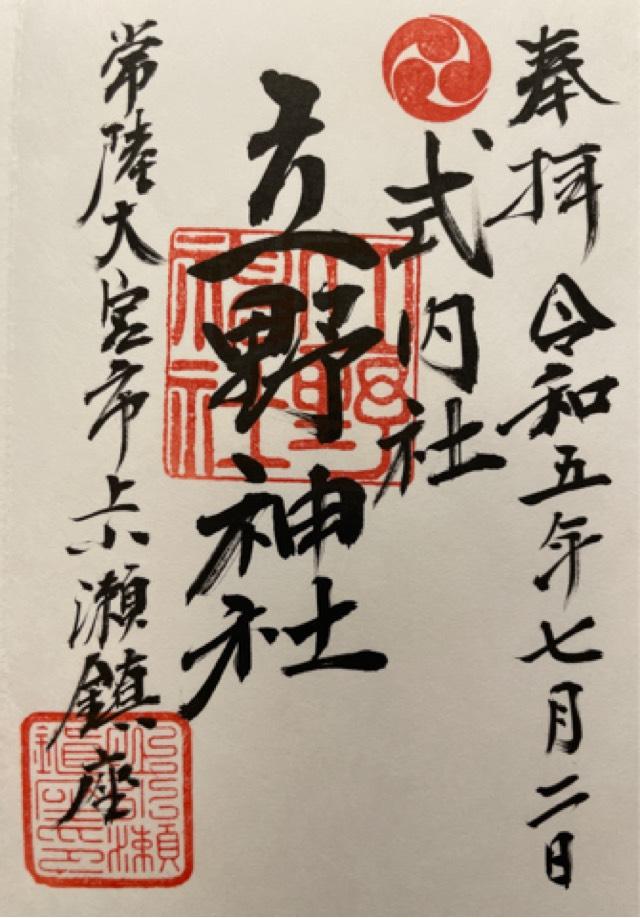 奉拝 令和五年七月二日
式内社
立野神社
常陸大宮市上小瀬鎮座
立野神社